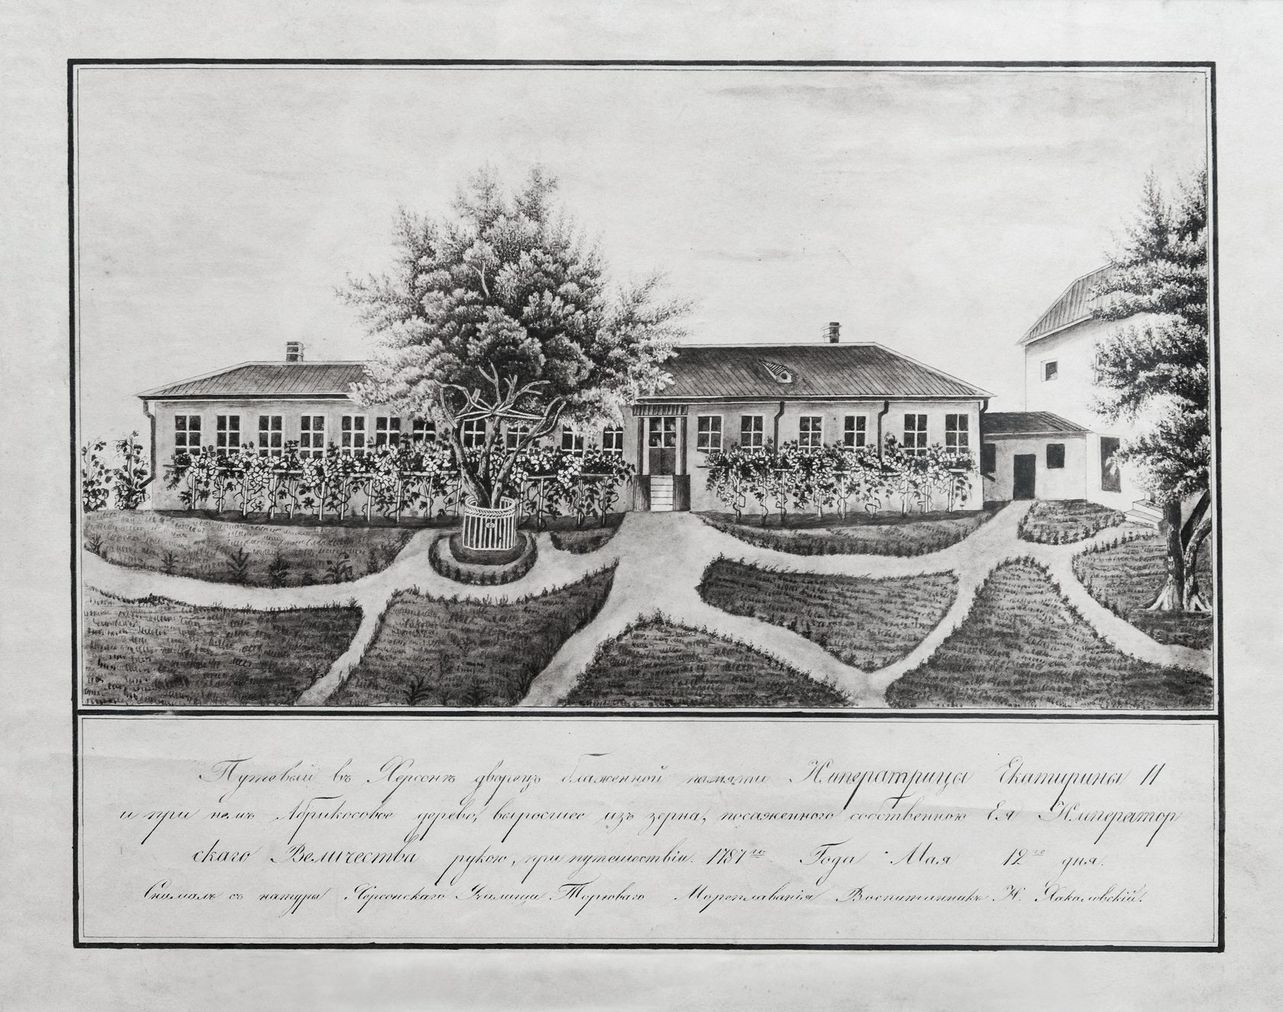 Путевый въ Херсонѣ дворецъ блаженной памяти Императрицы Екатерины II
и при немъ Абрикосовое дерево, выросшее изъ зерна, посаженного собственною Ея Император
скаго Величества рукою, при путешествіи. 1787го Года Мая 12го дня.
Снималъ съ натуры Херсонскаго Училища Торговаго Мореплаванія Воспитанникъ Н.